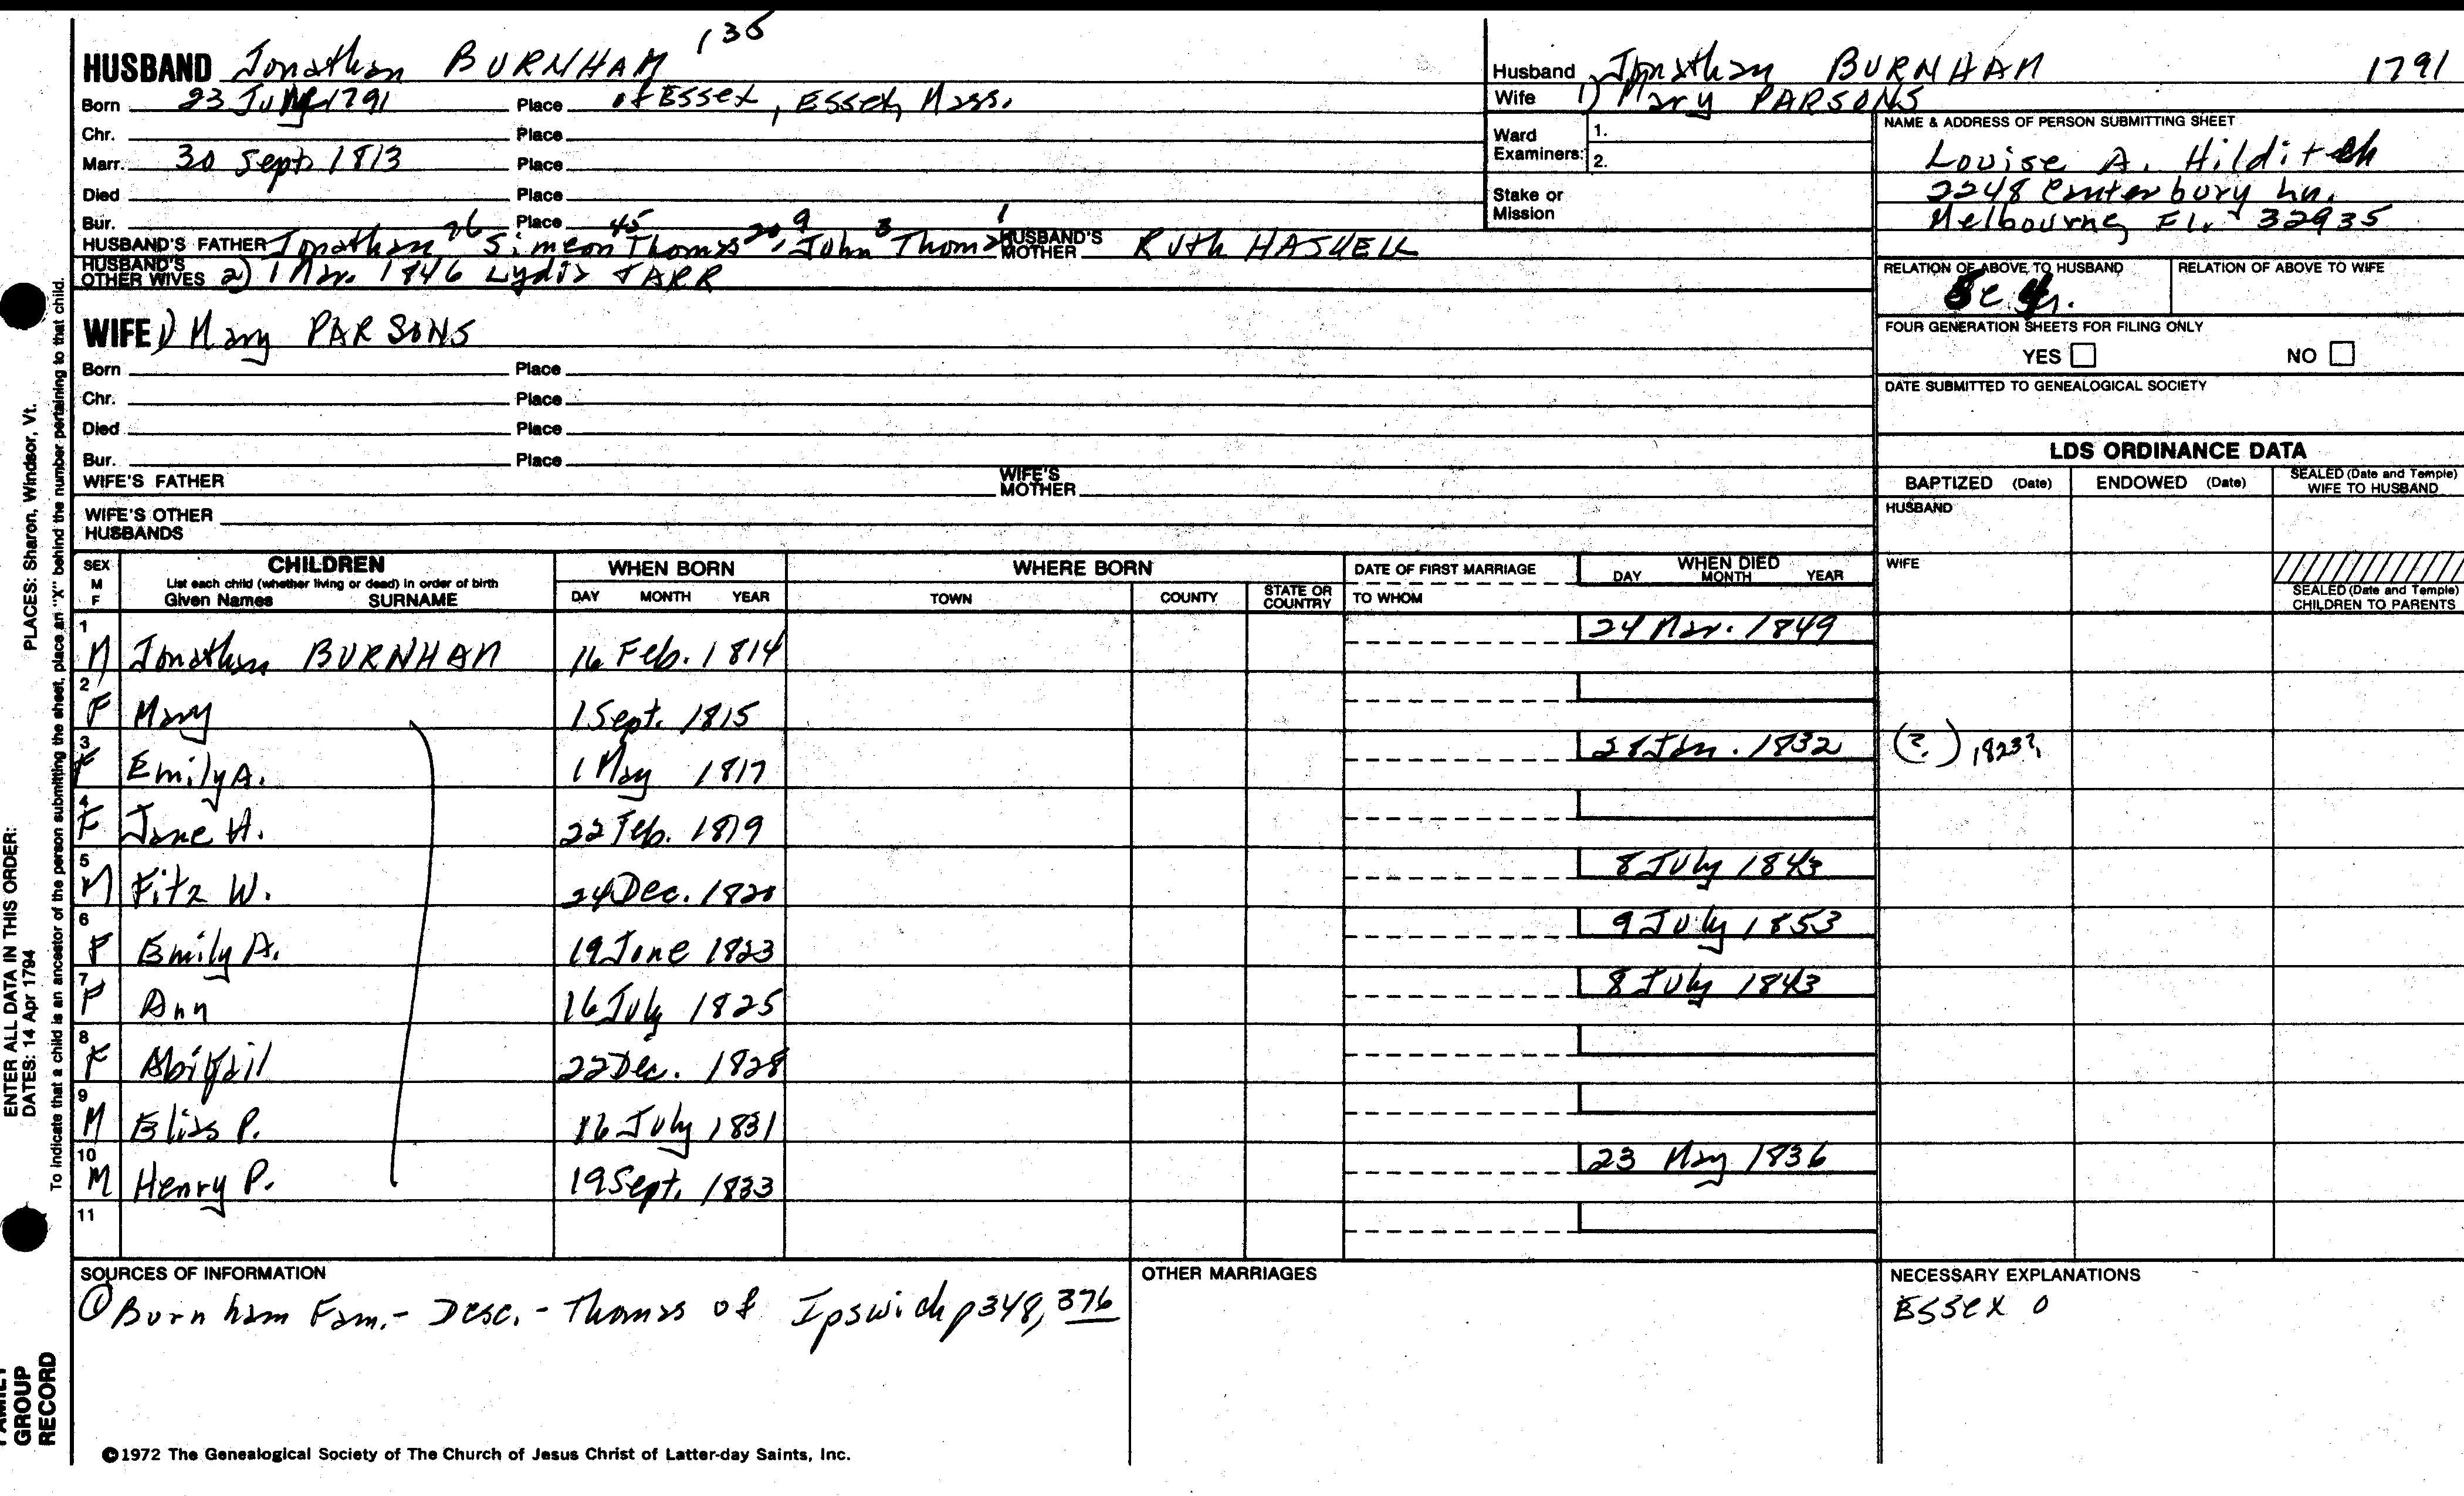 135
HUSBAND Jonathan BURNHAM
Born 23 1791 Place of Essex, Essex, Mass.
Chr. Place
Marr. 30 Sept. 1813 Place
Died Place
Bur. Place
HUSBAND'S FATHER Jonathan 26 Simeon 45 Thomas 20, 9 John 3 Thomas 1 HUSBAND'S MOTHER Ruth HASKELL
HUSBAND'S OTHER WIVES 2) 1 Mar. 1846 Lydia TARR
WIFE 1) Mary PARSONS
Born Place
Chr. Place
Died Place
Bur. Place
WIFE'S FATHER WIFE'S MOTHER
WIFE'S OTHER HUSBANDS
Husband Jonathan BURNHAM 1791
Wife 1) Mary PARSONS
Ward Examiners: 1.
2.
Stake or Mission
NAME & ADDRESS OF PERSON SUBMITTING SHEET
Louise A. Hilditch
2248 Canterbury Ln.
Melbourne, Fl. 32935
RELATION OF ABOVE TO HUSBAND RELATION OF ABOVE TO WIFE
FOUR GENERATION SHEETS FOR FILING ONLY
YES NO
DATE SUBMITTED TO GENEALOGICAL SOCIETY
LDS ORDINANCE DATA
BAPTIZED (Date) ENDOWED (Date) SEALED (Date and Temple) WIFE TO HUSBAND
HUSBAND
WIFE
SEALED (Date and Temple) CHILDREN TO PARENTS
SEX M F CHILDREN WHEN BORN WHERE BORN DATE OF FIRST MARRIAGE WHEN DIED
List each child (whether living or dead) in order of birth
Given Names SURNAME DAY MONTH YEAR TOWN COUNTY STATE OR COUNTRY TO WHOM DAY MONTH YEAR
1 M Jonathan BURNHAM 16 Feb. 1814 24 Mar. 1849
2 F Mary 1 Sept. 1815
3 F Emily A. 1 May 1817 28 Jan. 1832 (?) 1823?
4 F Jane H. 22 Feb. 1819
5 M Fitz W. 24 Dec. 1820 8 July 1843
6 F Emily A. 19 June 1823 9 July 1853
7 F Ann 16 July 1825 8 July 1843
8 F Abigail 22 Dec. 1828
9 M Elias P. 16 July 1831
10 M Henry P. 19 Sept. 1833 23 May 1836
11
SOURCES OF INFORMATION
① Burnham Fam. - Desc. - Thomas of Ipswich p348, 376
OTHER MARRIAGES
NECESSARY EXPLANATIONS
Essex 0
©1972 The Genealogical Society of The Church of Jesus Christ of Latter-day Saints, Inc.
ENTER ALL DATA IN THIS ORDER:
DATES: 14 Apr 1794 PLACES: Sharon, Windsor, Vt.
To indicate that a child is an ancestor of the person submitting the sheet, place an "X" behind the number pertaining to that child.
FAMILY
GROUP
RECORD